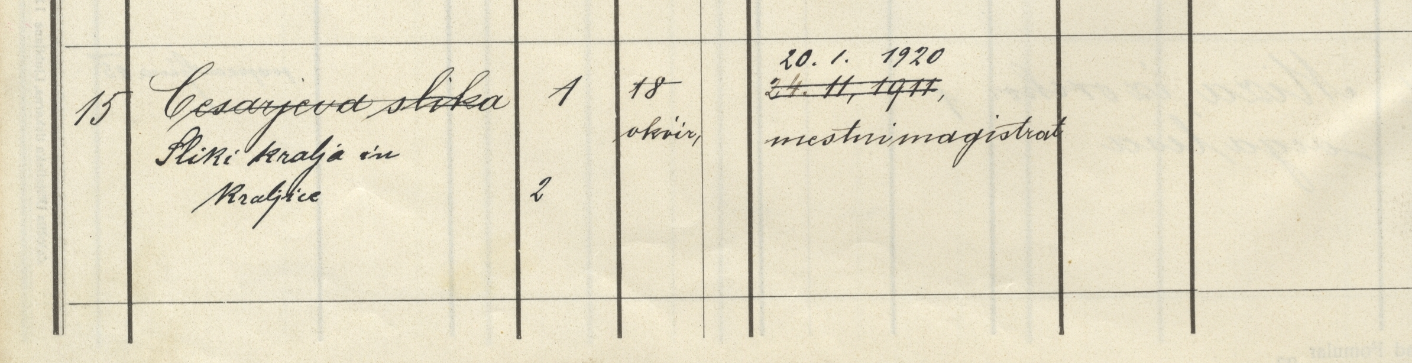 20. 1. 1920
15 Cesarjeva slika 1 18 24. 11, 1911,
okvir, mestni magistrat
Sliki kralja in
kraljice 2